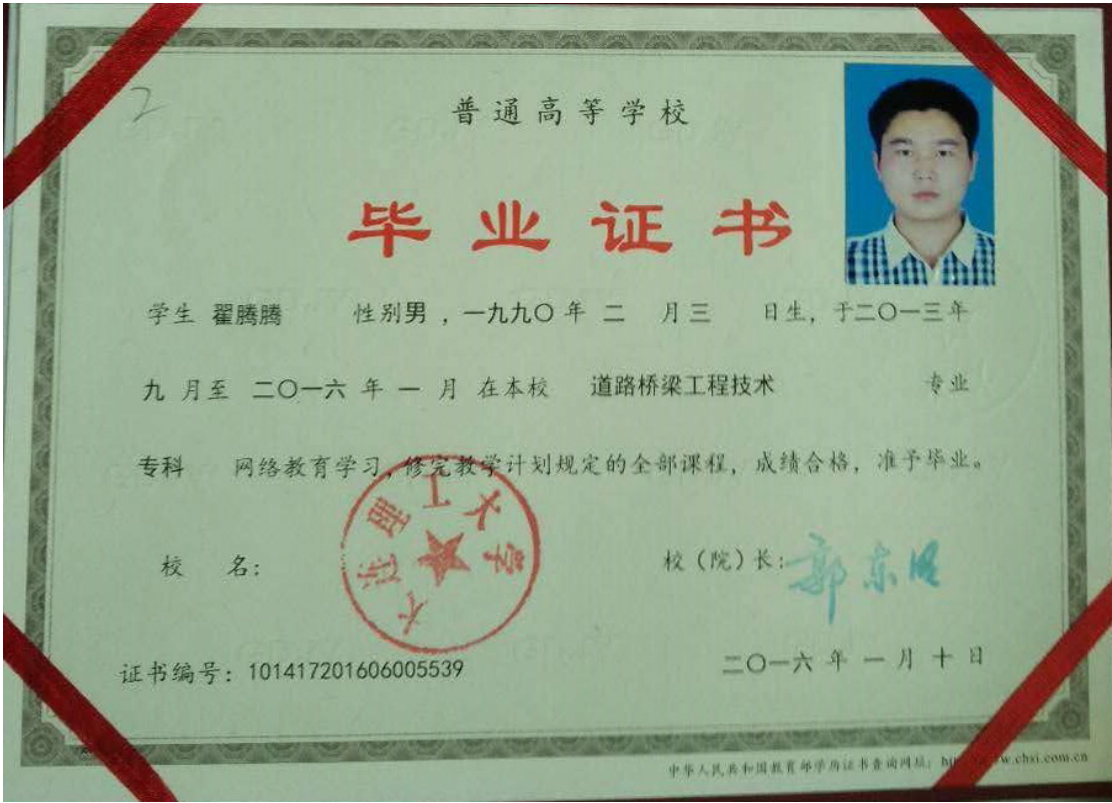 2
普通高等学校
毕业证书
学生 翟腾腾 性别男 ，一九九〇年 二 月三 日生，于二〇一三年
九 月至 二〇一六 年 一 月 在本校 道路桥梁工程技术 专业
专科 网络教育学习，修完教学计划规定的全部课程，成绩合格，准予毕业。
大连理工大学
校 名： 校（院）长：郭东明
证书编号：101417201606005539 二〇一六 年 一 月 十 日
中华人民共和国教育部学历证书查询网址：
w.chsi.com.cn